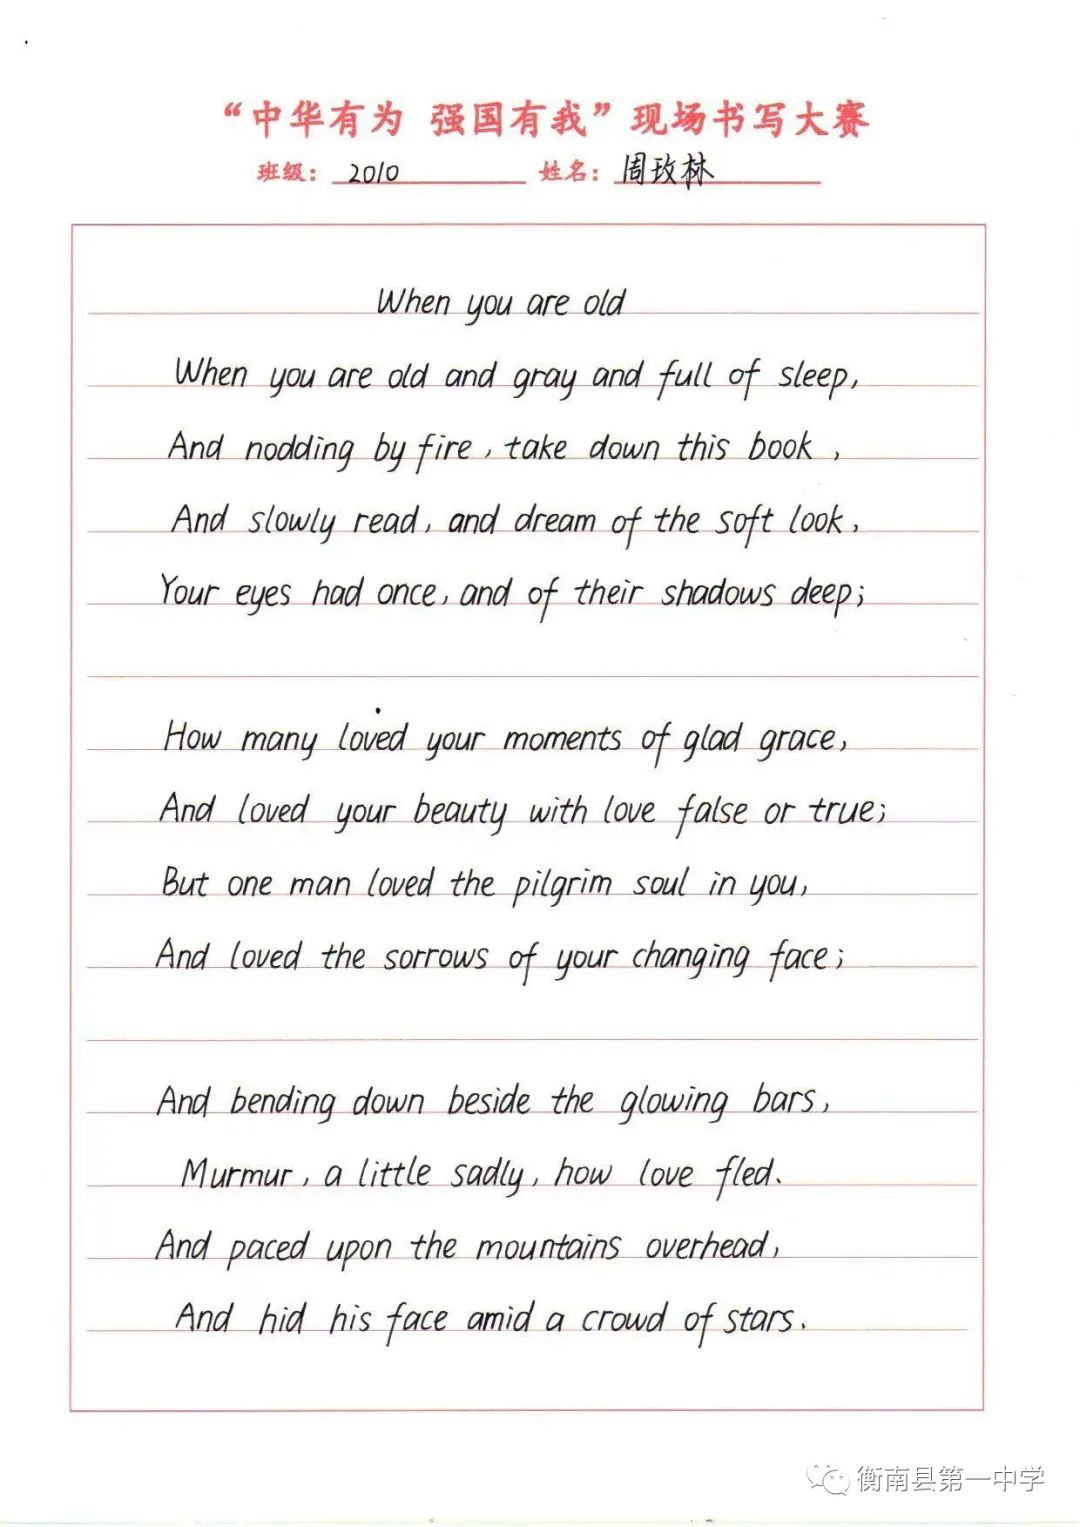 “中华有为 强国有我”现场书写大赛
班级： 2010 姓名： 周玫林
When you are old
When you are old and gray and full of sleep,
And nodding by fire, take down this book,
And slowly read, and dream of the soft look,
Your eyes had once, and of their shadows deep;
How many loved your moments of glad grace,
And loved your beauty with love false or true;
But one man loved the pilgrim soul in you,
And loved the sorrows of your changing face;
And bending down beside the glowing bars,
Murmur, a little sadly, how love fled.
And paced upon the mountains overhead,
And hid his face amid a crowd of stars.
衡南县第一中学